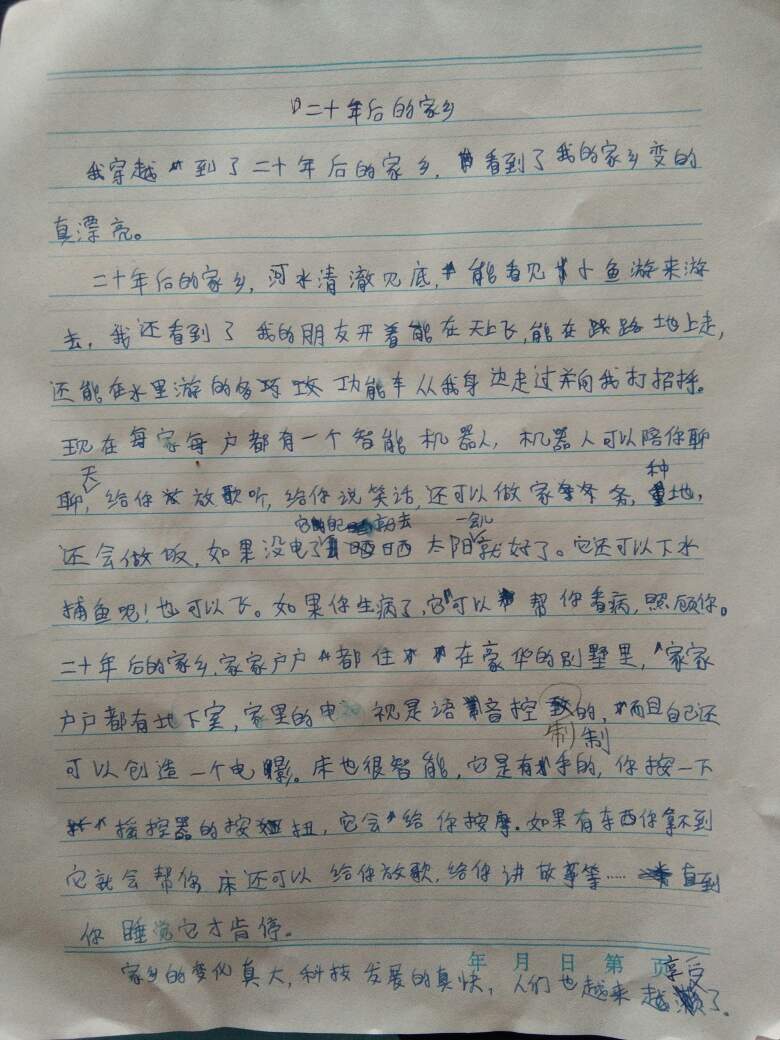 二十年后的家乡
我穿越到了二十年后的家乡，看到了我的家乡变的
真漂亮。
二十年后的家乡，河水清澈见底，能看见小鱼游来游
去，我还看到了我的朋友开着能在天上飞，能在路地上走，
还能在水里游的多功能车从我身边走过并向我打招呼。
现在每家每户都有一个智能机器人，机器人可以陪你聊
天
种
聊，给你放歌听，给你说笑话，还可以做家务，地，
它自己去
一会儿
还会做饭，如果没电了晒太阳就好了。它还可以下水
捕鱼呢！也可以飞。如果你生病了，它可以帮你看病，照顾你。
二十年后的家乡，家家户户都住在豪华的别墅里，家家
户户都有地下室，家里的电视是语音控的，而且自己还
制制
可以创造一个电影。床也很智能，它是有手的，你按一下
摇控器的按扭，它会给你按摩。如果有东西你拿不到
它就会帮你床还可以给你放歌，给你讲故事等……直到
你睡觉它才肯停。
年 月 日 第 页
享受
家乡的变化真大，科技发展的真快，人们也越来越了。